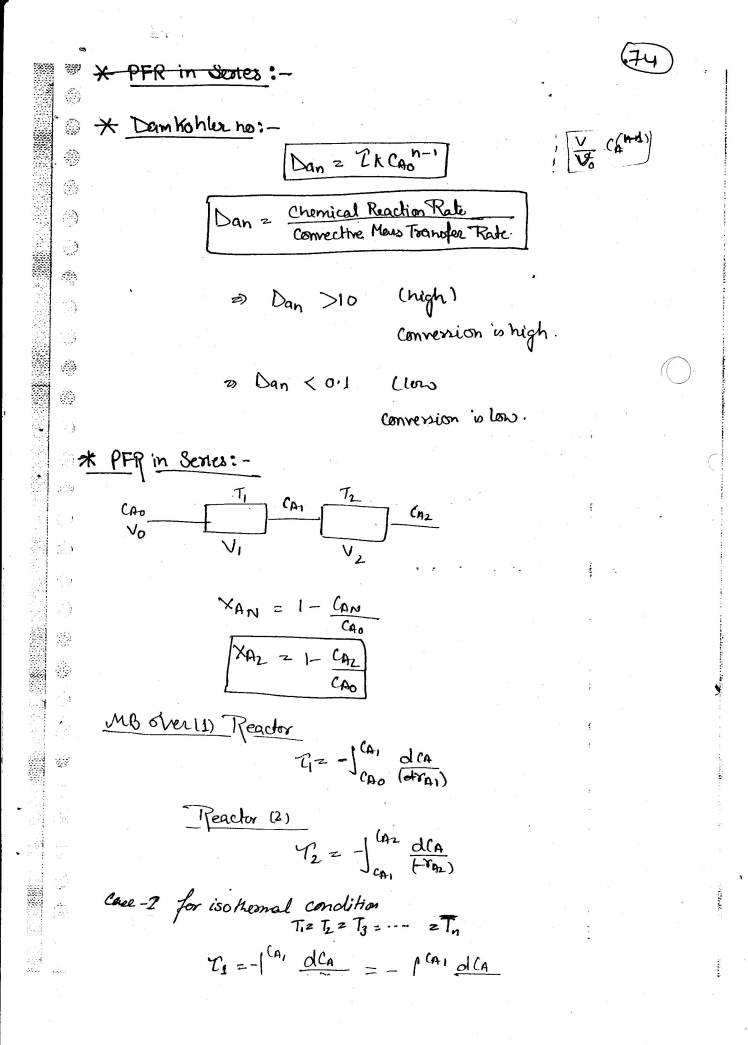 74
* PFR in Series :-
* Damkohler no :-
Dan = τ k CA0^n-1
V/V0 . CA^(n-1)
Dan = Chemical Reaction Rate / Convective Mass Transfer Rate.
⇒ Dan >10 (high)
conversion is high.
⇒ Dan < 0.1 (low
conversion is low.
* PFR in Series :-
T1 T2
CA0 CA1 CA2
V0
V1 V2
XAN = 1 - CAN/CA0
XA2 = 1 - CA2/CA0
MB over (1) Reactor
τ1 = -∫CA0^CA1 dCA/(-rA1)
Reactor (2)
τ2 = -∫CA1^CA2 dCA/(-rA2)
Case-I for isothermal condition
T1 = T2 = T3 = ---- = Tn
τ1 = -∫^CA1 dCA = - ∫^CA1 dCA